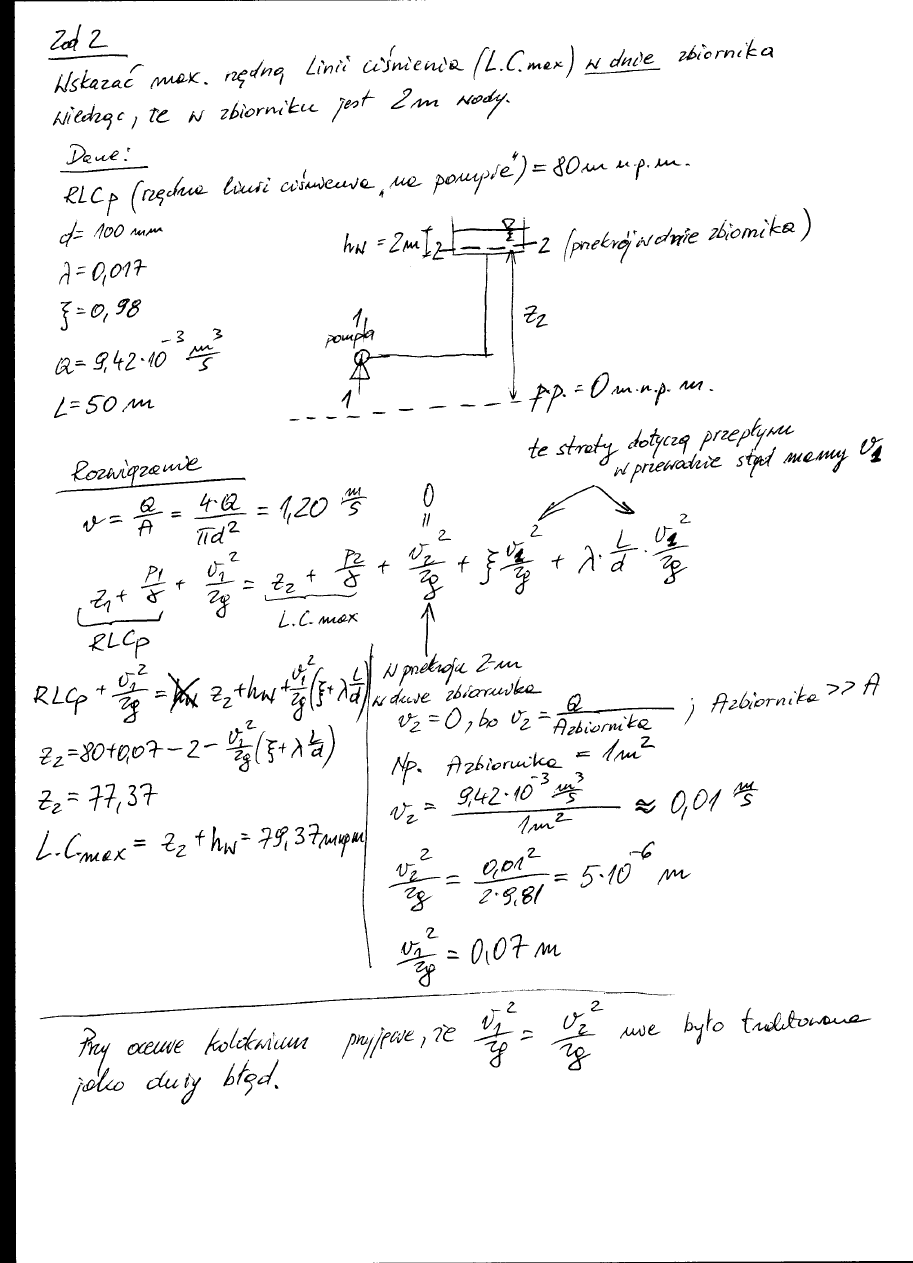 Zad 2
Wskazać max. rzędną Linii ciśnienia (L.C.max) w dnie zbiornika
wiedząc, że w zbiorniku jest 2m wody.
Dane:
RLCp (rzędna linii ciśnienia „na pompie") = 80 m n.p.m.
d = 100 mm
λ = 0,017
ξ = 0,98
Q = 9,42·10⁻³ m³/s
L = 50 m
hw = 2m
2 – 2 (przekrój w dnie zbiornika)
z₂
1
pompa
1
p.p. = 0 m.n.p.m.
te straty dotyczą przepływu
w przewodzie stąd mamy v₁
Rozwiązanie
v = Q/A = 4·Q/πd² = 1,20 m/s
0
=
z₁ + p₁/γ + v₁²/2g = z₂ + p₂/γ + v₂²/2g + ξ v₁²/2g + λ · L/d · v₁²/2g
RLCp
L.C.max
RLCp + v₁²/2g = z₂ + hw + v₁²/2g (ξ + λ L/d)
z₂ = 80 + 0,07 – 2 – v₁²/2g (ξ + λ L/d)
z₂ = 77,37
L.Cmax = z₂ + hw = 79,37 mnpm
w przekroju 2-m
w dnie zbiornika
v₂ = 0, bo v₂ = Q/Azbiornika ; Azbiornika >> A
Np. Azbiornika = 1m²
v₂ = 9,42·10⁻³ m³/s / 1m² ≈ 0,01 m/s
v₂²/2g = 0,01²/2·9,81 = 5·10⁻⁶ m
v₁²/2g = 0,07 m
Przy ocenie kolokwium przyjęcie, że v₁²/2g = v₂²/2g nie było traktowane
jako duży błąd.